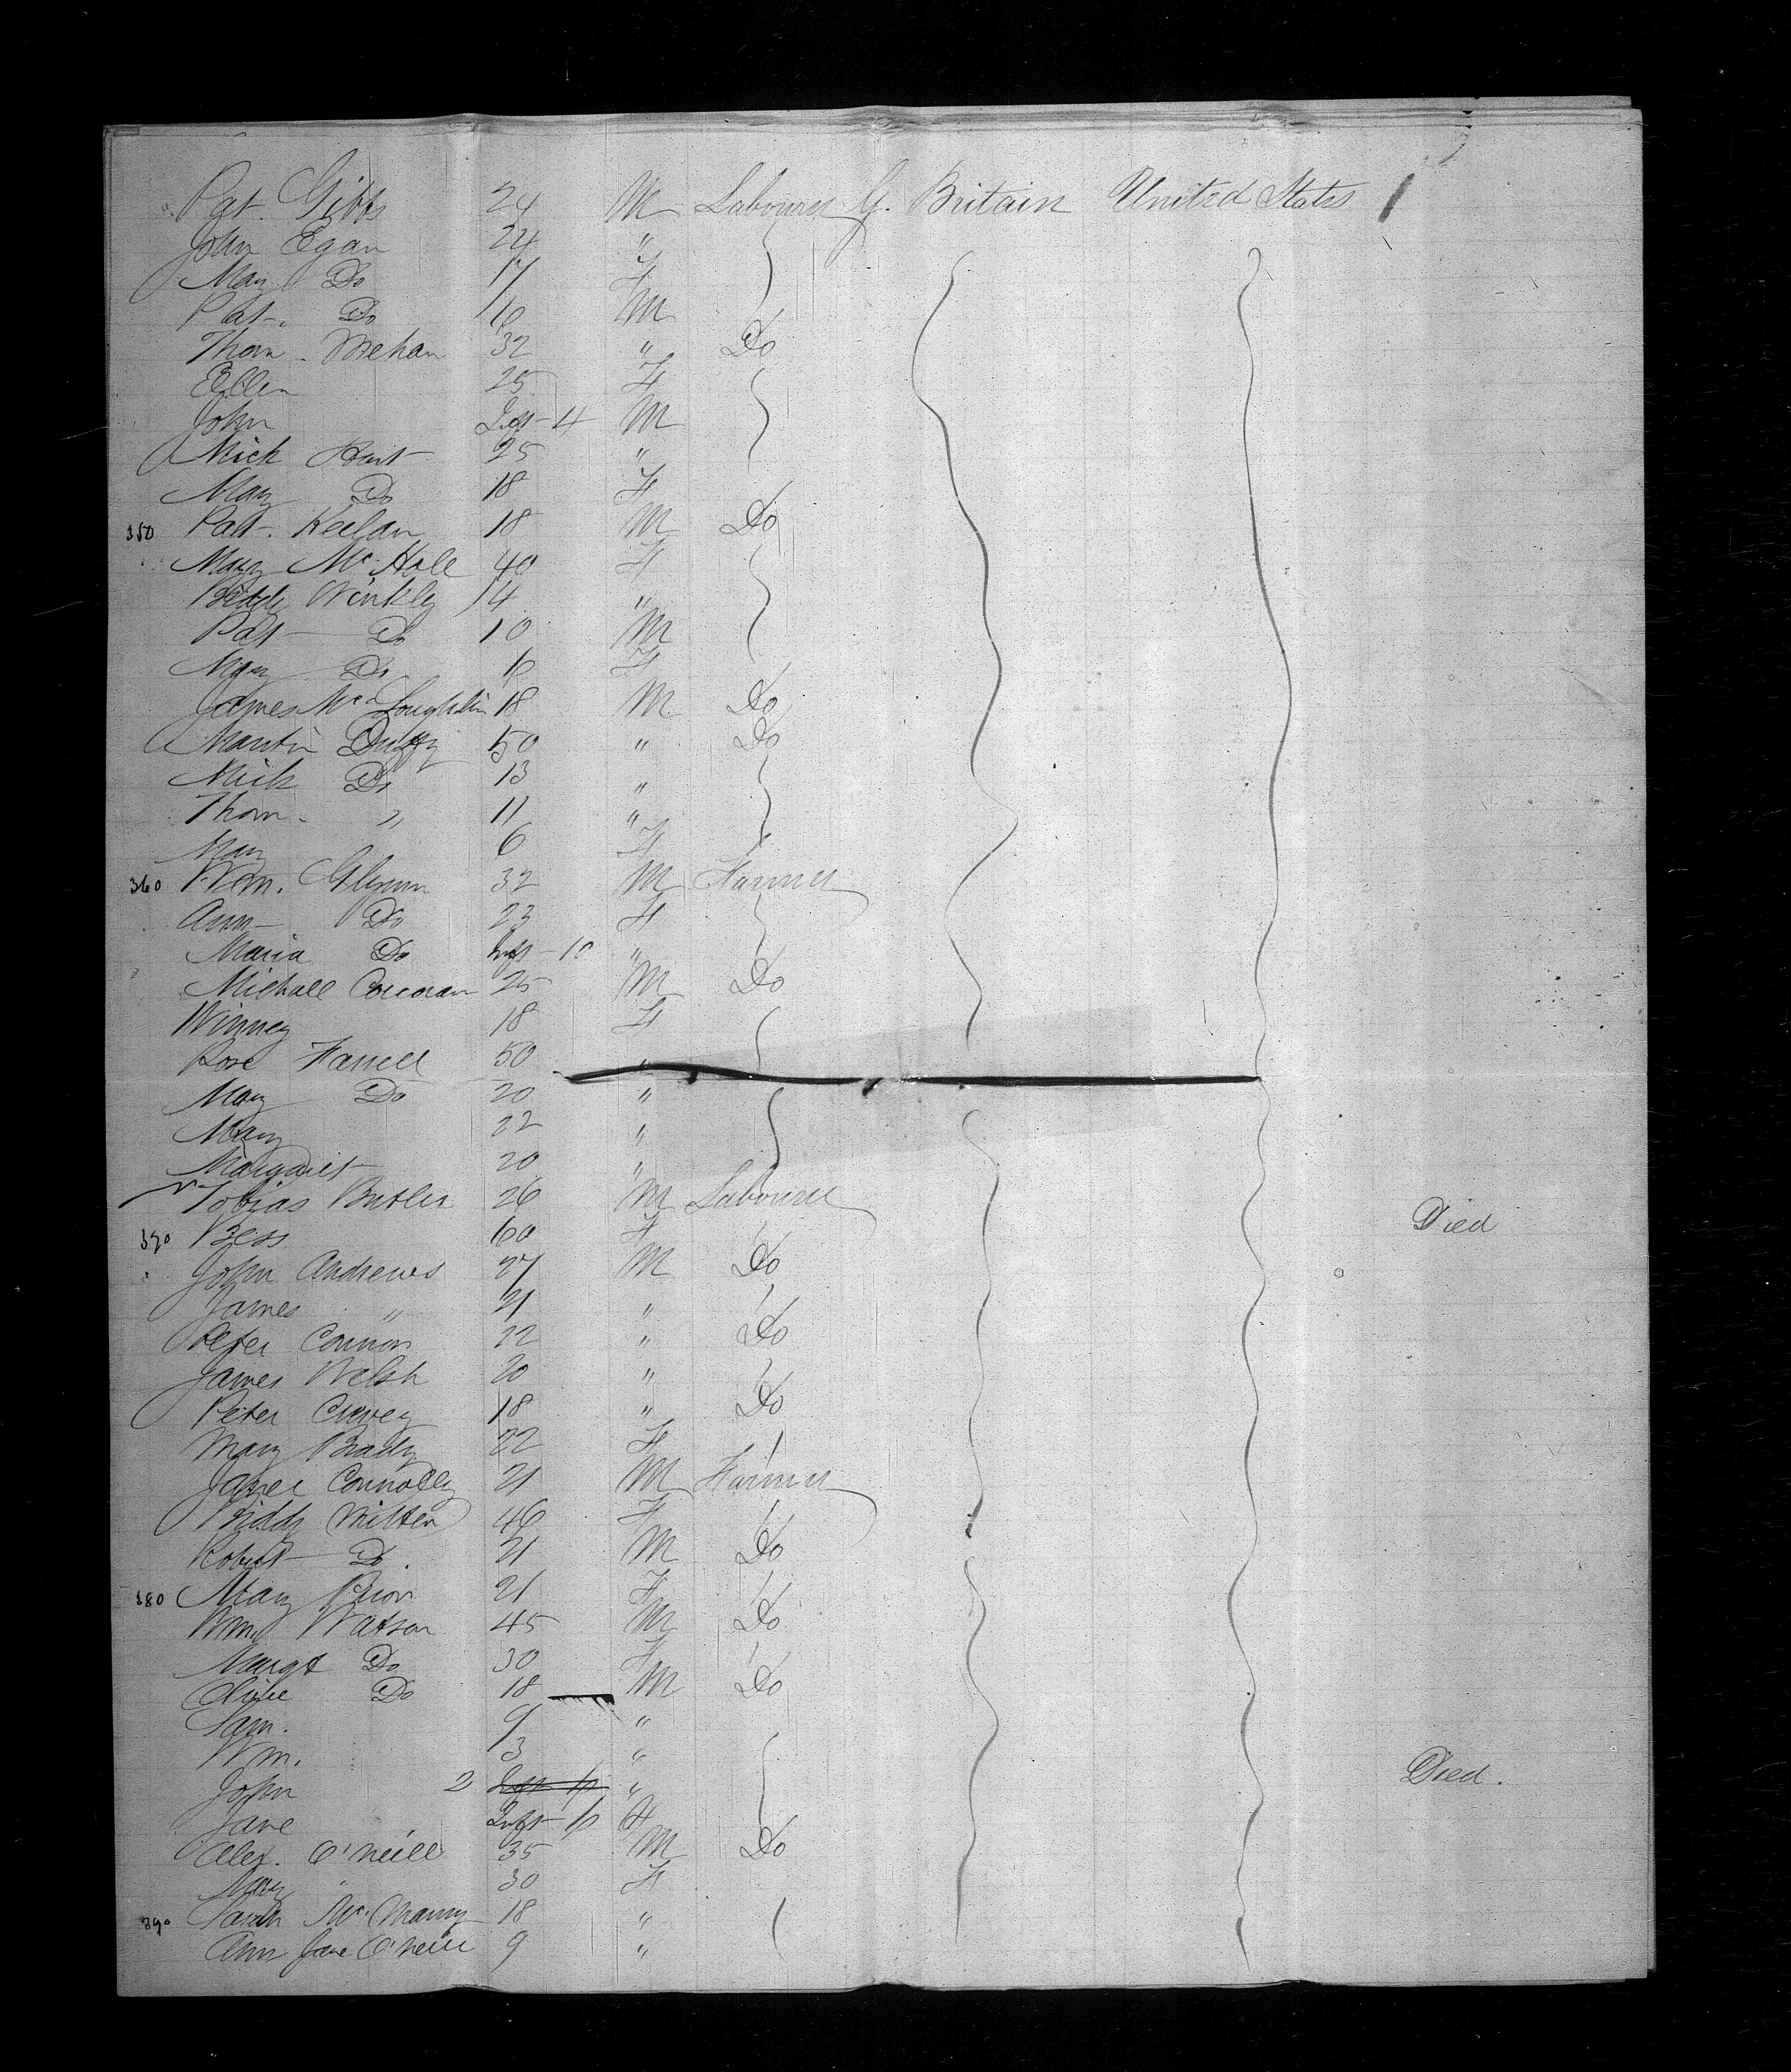 Pat. Gibbs 24 M Labourer G. Britain United States
John Egan 24 "
Mary Do 17 F
Pat. Do 16 M
Thom. Mehan 32 " Do
Ellen 25 F
John Inft - 4 M
Mick Hart 25 "
Mary Do 18 F
350 Pat. Keelan 18 M Do
Mary Mc Hale 40 F
Biddy Winkly 14 "
Pat Do 10 M
Mary Do F
James Mc Loughlin 18 M Do
Martin Duffy 50 " Do
Mick Do 13 "
Thom. " 11 "
Mary 6 F
360 Wm. Glynn 32 M Farmer
Ann Do 23 F
Maria Do Inft - 10 "
Michall Corcoran 25 M Do
Winney 18 F
Rose Farrell 50 "
Mary Do 20 "
Mary 22 "
Margaret 20 "
Tobias Butler 26 M Labourer
370 Bess 60 F Died
John Andrews 27 M Do
James " 21 "
Peter Connor 22 " Do
James Welsh 20 "
Peter 18 " Do
Mary Brady 22 F
Connolly 21 M Farmer
Biddy Milten 46 F
Robert Do. 21 M Do
380 Mary Prior 21 F
Wm. Watson 45 M Do
Margt Do 30 F
Do 18 M Do
Sam. 9 "
Wm. 3 "
John 2 " Died.
Jane Inft F
Alex. O'Neill 35 M Do
Mary 30 F
390 Sarah Mc Manny 18 "
Ann Jane O'Neill 9 "